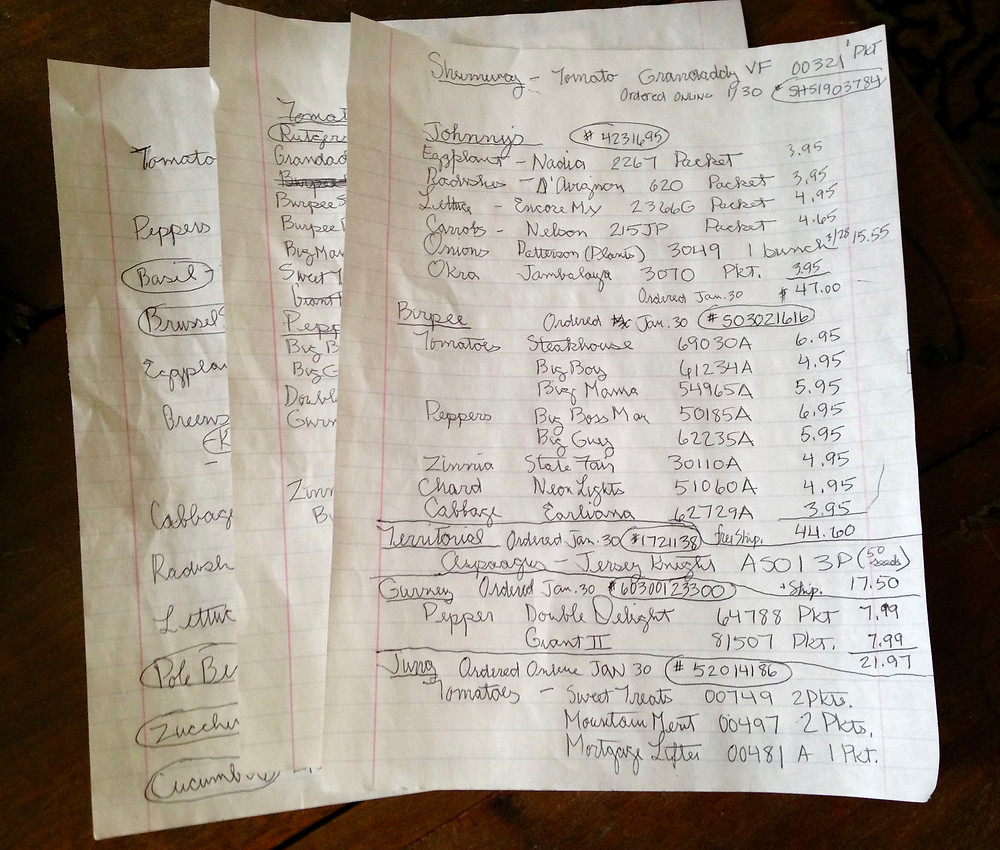 Tomato
Peppers
Basil -
Brussel S
Eggplan
Greens
Cabbage
Radish
Lettuc
Pole Be
Zucchi
Cucumb
Tomat
Rutgers
Grandad
Burpee S
Burpee
Big Mam
Sweet T
Giant
Pepp
Big B
Big G
Double
Gurn
Zinn
Shumway - Tomato Grandaddy VF 00321 1 PKT
Ordered ONLINE 1/30 # SH51903784
Johnny's # 4231695
Eggplant - Nadia 2267 Packet 3.95
Radishes - D'Avignon 620 Packet 3.95
Lettuce - Encore Mix 2366G Packet 4.95
Carrots - Nelson 215JP Packet 4.65
Onions Patterson (Plants) 3049 1 bunch 4/28 15.55
Okra Jambalaya 3070 Pkt. 3.95
Ordered Jan. 30 $ 47.00
Burpee Ordered Jan. 30 #503021616
Tomatoes Steakhouse 69030A 6.95
Big Boy 61234A 4.95
Big Mama 54965A 5.95
Peppers Big Boss Man 50185A 6.95
Big Guy 62235A 5.95
Zinnia State Fair 30110A 4.95
Chard Neon Lights 51060A 4.95
Cabbage Earliana 62729A 3.95
Territorial Ordered Jan. 30 #1721138 free Ship. 44.60
Aspaagus - Jersey Knight AS013P (50 seeds)
Gurney Ordered Jan. 30 #60300123300 + Ship. 17.50
Pepper Double Delight 64788 Pkt 7.99
Giant II 81507 Pkt. 7.99
21.97
Jung Ordered Online JAN 30 # 52014186
Tomatoes - Sweet Treats 00749 2 Pkts.
Mountain Merit 00497 2 Pkts.
Mortgage Lifter 00481 A 1 Pkt.